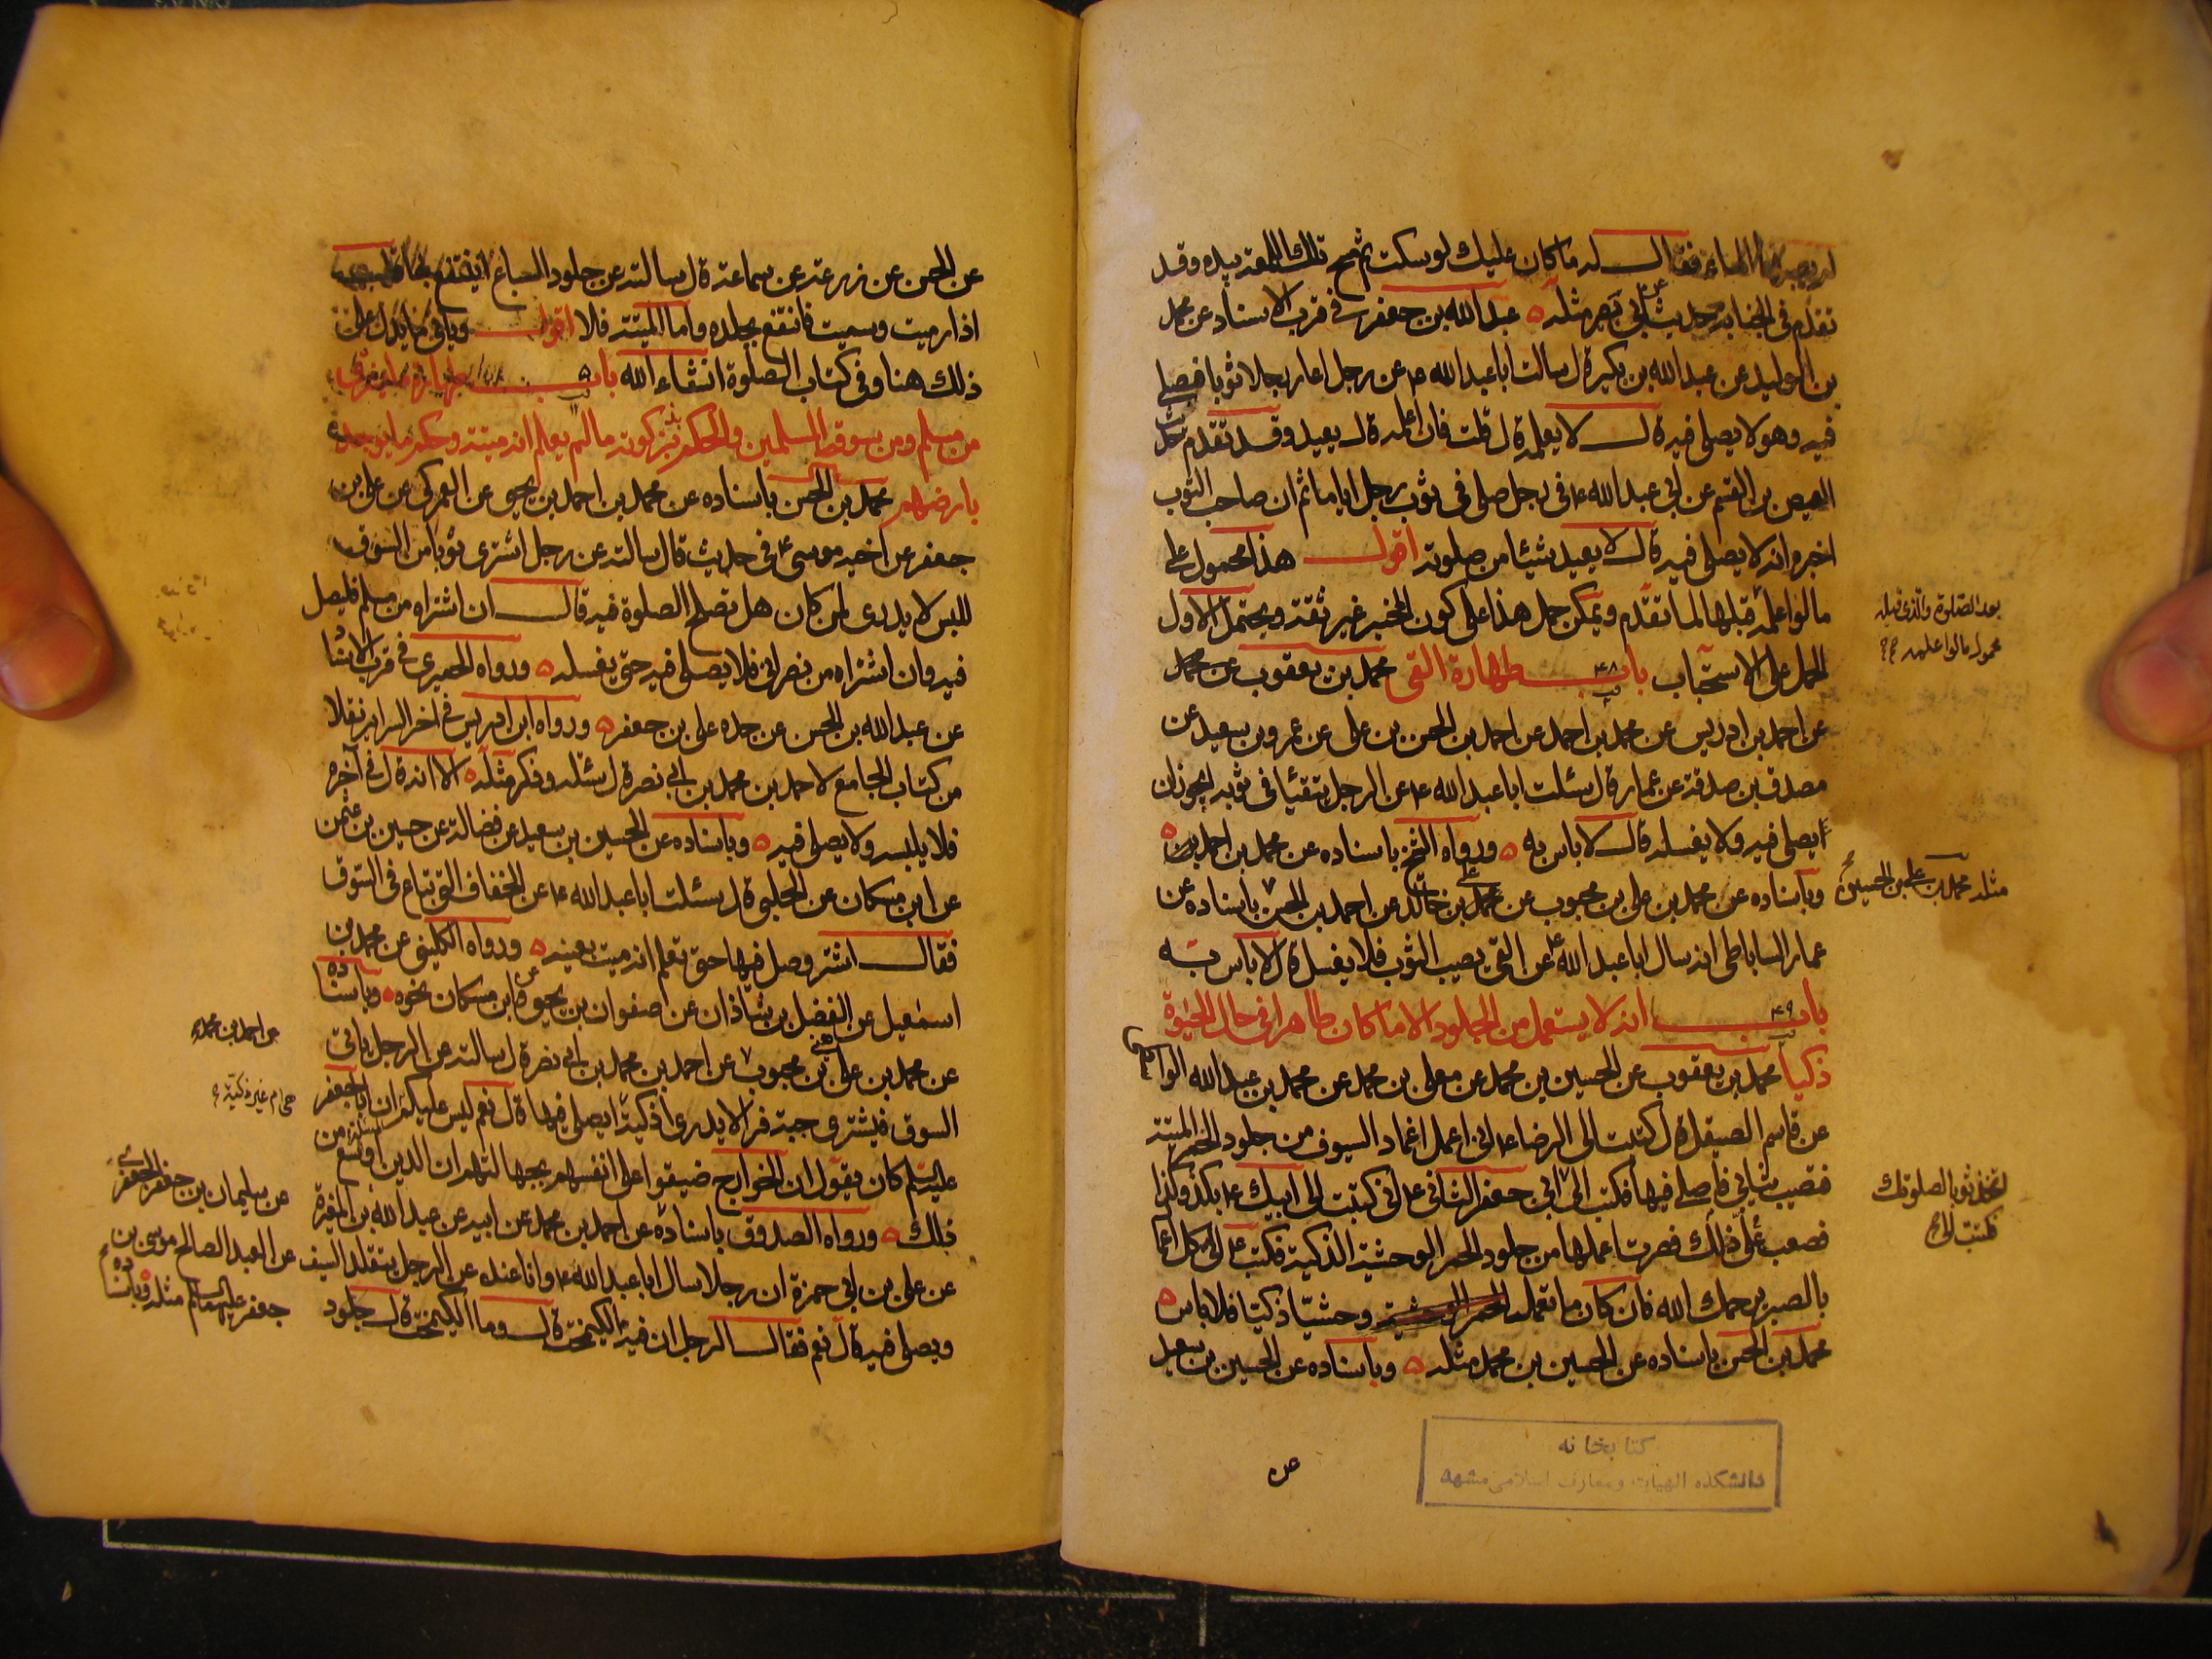 فقال له ما كان عليك لو سكت ثم تمسح تلك اللمعة بيده وقد
تقدم فى الجنابة حديث ابى بصير مثله ه عبد الله بن جعفر فى قرب الاسناد عن محمد
بن الوليد عن عبد الله بن بكير قال سالت ابا عبد الله ع عن رجل اعار رجلا ثوبا فصلى
فيه وهو لا يصلى فيه قال لا يعلمه قال قلت فان اعلمه قال يعيد وقد تقدم حديث
العيص بن القسم عن ابى عبد الله ع فى رجل صلى فى ثوب رجل اياما ثم ان صاحب الثوب
اخبره انه لا يصلى فيه قال لا يعيد شيئا من صلوته اقول هذا محمول على
ما لو اعلمه قبلها لما تقدم ويمكن حمل هذا على كون المخبر غير ثقة ويحتمل الاول
الحمل على الاستحباب باب ۴۸ طهارة القى محمد بن يعقوب عن محمد
عن احمد بن ادريس عن محمد بن احمد عن احمد بن الحسن بن على عن عمرو بن سعيد عن
مصدق بن صدقة عن عمار قال سئلت ابا عبد الله ع عن الرجل يتقيأ فى ثوبه ايجوز ان
ايصلى فيه ولا يغسله قال لا باس به ه ورواه الشيخ باسناده عن محمد بن احمد بن
وباسناده عن محمد بن على بن محبوب عن على بن خالد عن احمد بن الحسن باسناده عن
عمار الساباطى انه سال ابا عبد الله ع عن القى يصيب الثوب فلا يغسل قال لا باس به
باب ۴۹ انه لا يستعمل من الجلود الا ما كان طاهرا فى حال الحيوة
ذكيا محمد بن يعقوب عن الحسين بن محمد عن معلى بن محمد عن محمد بن عبد الله الواسطى
عن قاسم الصيقل قال كتبت الى الرضا ع انى اعمل اغماد السيوف من جلود الحمر الميتة
فتصيب ثيابى فاصلى فيها فكتب الى ابى جعفر الثانى ع انى كتبت الى ابيك ع بكذا وكذا
فصعب على ذلك فصرت اعملها من جلود الحمر الوحشية الذكية فكتب ع الى كل اعمال
بالصبر يرحمك الله فان كان ما تعمله وحشيا ذكيا فلا باس ه
محمد بن الحسن باسناده عن الحسين بن محمد مثله ه وباسناده عن الحسين بن سعيد
عن
بعد الصلوة والذى قبله
محمول ما لو اعلمه
مثله محمد بن على بن الحسين
اتخذ ثوبا لصلوتك
فكتبت الى
كتابخانه
دانشكده الهيات و معارف اسلامى مشهد
عن الحسن عن زرعة عن سماعة قال سالته عن جلود السباع اينتفع بها
اذا رميت وسميت فانتفع بجلده واما الميتة فلا اقول وياتى ما يدل على
ذلك هنا وفى كتاب الصلوة انشاء الله باب طهارة ما يشترى
من مسلم ومن سوق المسلمين والحكم بذكوته ما لم يعلم انه ميتة وحكم ما يوجد
بارضهم محمد بن الحسن باسناده عن محمد بن احمد بن يحيى عن العمركى عن على بن
جعفر عن اخيه موسى ع فى حديث قال سالته عن رجل اشترى ثوبا من السوق
للبس لا يدرى لمن كان هل تصلح الصلوة فيه قال ان اشتراه من مسلم فليصل
فيه وان اشتراه من نصرانى فلا يصلى فيه حتى يغسله ه ورواه الحميرى فى قرب الاسناد
عن عبد الله بن الحسن عن جده على بن جعفر ه ورواه ابن ادريس فى اخر السراير نقلا
من كتاب الجامع لاحمد بن محمد بن ابى نصر قال سئلته وذكر مثله ه الا انه قال فى آخره
فلا يلبسه ولا يصلى فيه ه وباسناده عن الحسين بن سعيد عن فضالة عن حسين بن عثمن
عن ابن مسكان عن الحلبى قال سئلت ابا عبد الله ع عن الخفاف التى تباع فى السوق
فقال اشتر وصل فيها حتى تعلم انه ميت بعينه ه ورواه الكلينى عن محمد بن
اسمعيل عن الفضل بن شاذان عن صفوان بن يحيى عن ابن مسكان نحوه ه وباسناده
عن محمد بن على بن محبوب عن احمد بن محمد بن ابى نصر قال سالته عن الرجل ياتى
السوق فيشترى جبة فرا لا يدرى اذكية ايصلى فيها قال نعم ليس عليكم ان ابا جعفر
عليه السلم كان يقول ان الخوارج ضيقوا على انفسهم بجهالتهم ان الدين اوسع من
ذلك ه ورواه الصدوق باسناده عن احمد بن محمد عن ابيه عن عبد الله بن المغيرة
عن على بن ابى حمزة ان رجلا سال ابا عبد الله ع وانا عنده عن الرجل يتقلد السيف
ويصلى فيه قال نعم فقال الرجل ان فيه الكيمخت قال وما الكيمخت قال جلود
عن احمد بن محمد
ام غير ذكية
عن سليمان بن جعفر الجعفرى
عن العبد الصالح موسى بن
جعفر عليهما السلم مثله ه وباسناده